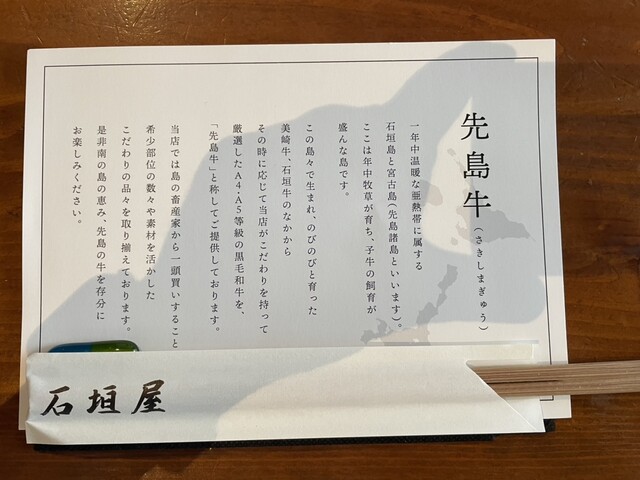 先島牛(さきしまぎゅう)
一年中温暖な亜熱帯に属する
石垣島と宮古島(先島諸島といいます)。
ここは年中牧草が育ち、子牛の飼育が
盛んな島です。
この島々で生まれ、のびのびと育った
美崎牛、石垣牛のなかから
その時に応じて当店がこだわりを持って
厳選したA4・A5等級の黒毛和牛を、
「先島牛」と称してご提供しております。
当店では島の畜産家から一頭買いすること
希少部位の数々や素材を活かした
こだわりの品々を取り揃えております。
是非南の島の恵み、先島の牛を存分に
お楽しみください。
石垣屋